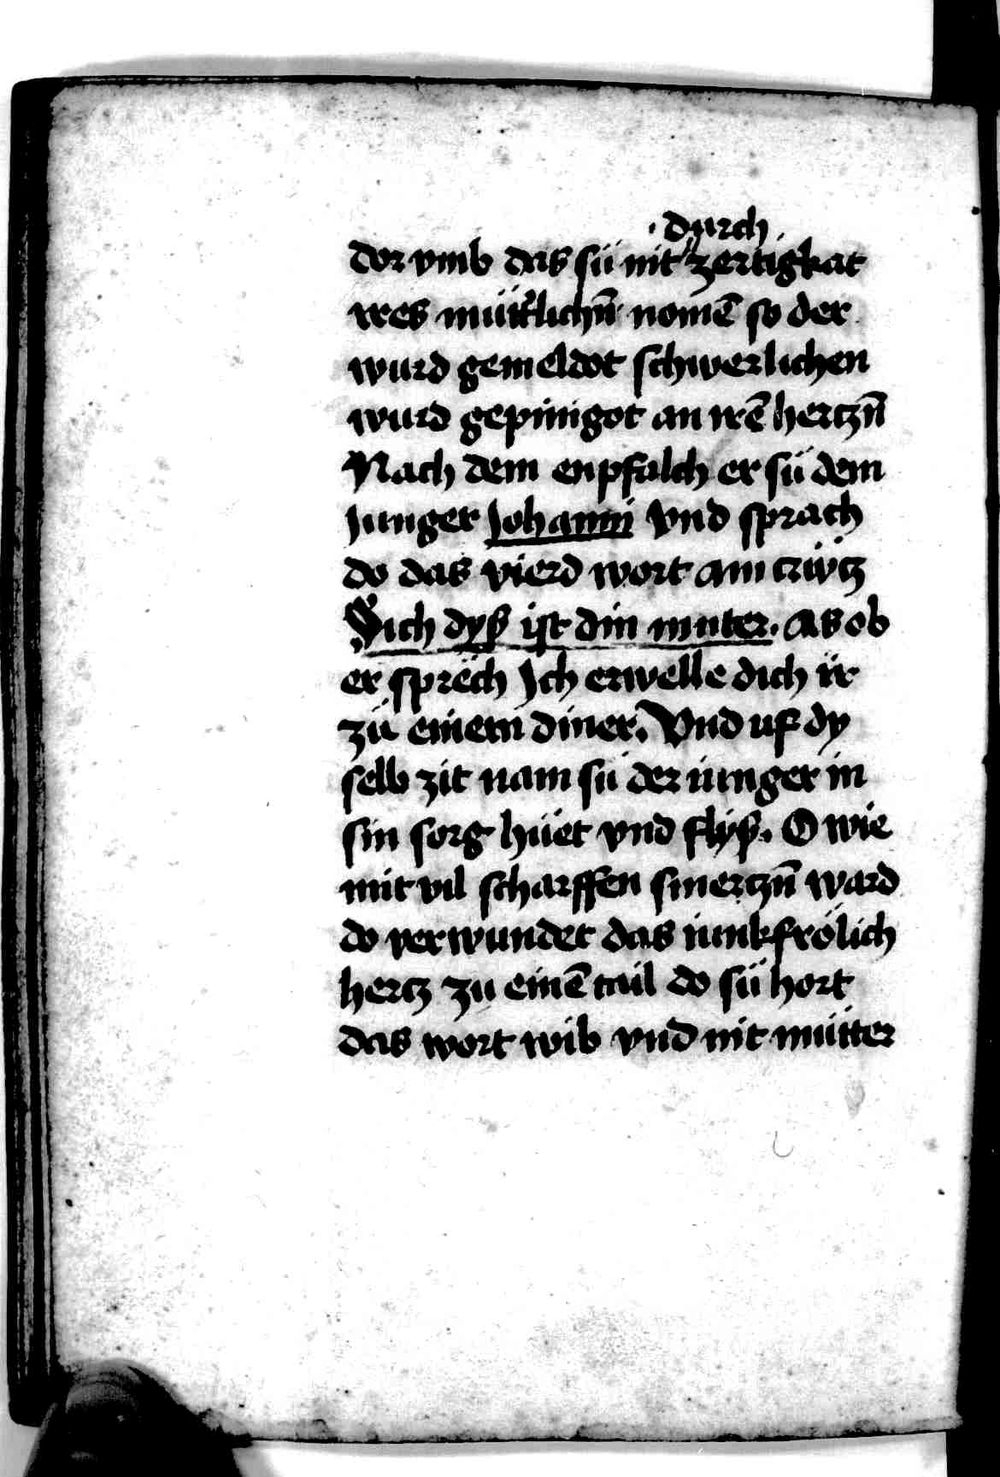 durch
dor vmb das sü nit zertigkat
ires müt͛lichn̄ nomē so der
wurd gemeldot schwerlichen
wurd gepinigot an irē hertzn̄
Nach dem enpfalch er sü dem
Junger Johanni vnd sprach
do das vierd wort am crütz
Sich dyß ist din muter. As ob
er sprech Ich erwelle dich ir
zü einem diner. Vnd uf dy
selb zit nam sü der iunger in
sin sorg hüet vnd flyß. O wie
mit vil scharffen smertzn̄ ward
do verwundet das iunkfrölich
hertz zu einē mil do sü hort
das wort wib vnd nit mütter